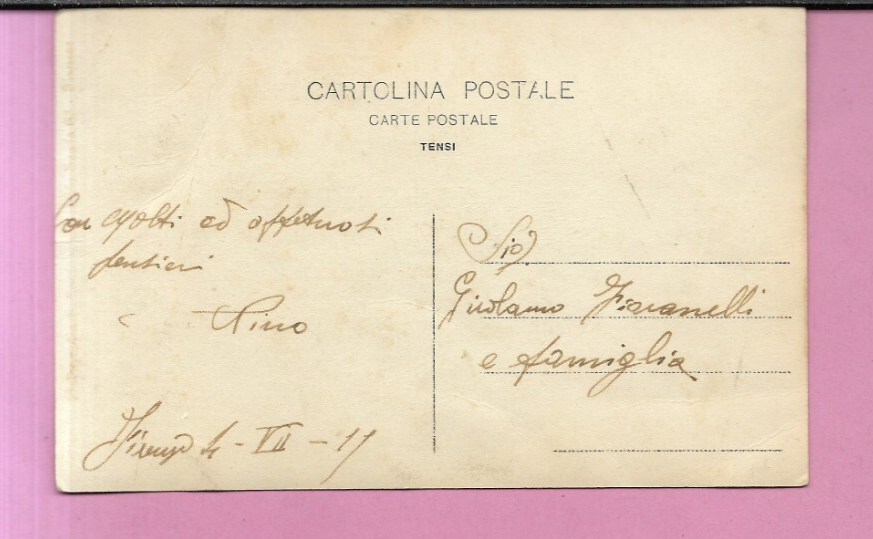 CARTOLINA POSTALE
CARTE POSTALE
TENSI
Con molti ed affettuosi
pensieri
Nino
Firenze 4-VII-17
Sig
Girolamo
e famiglia